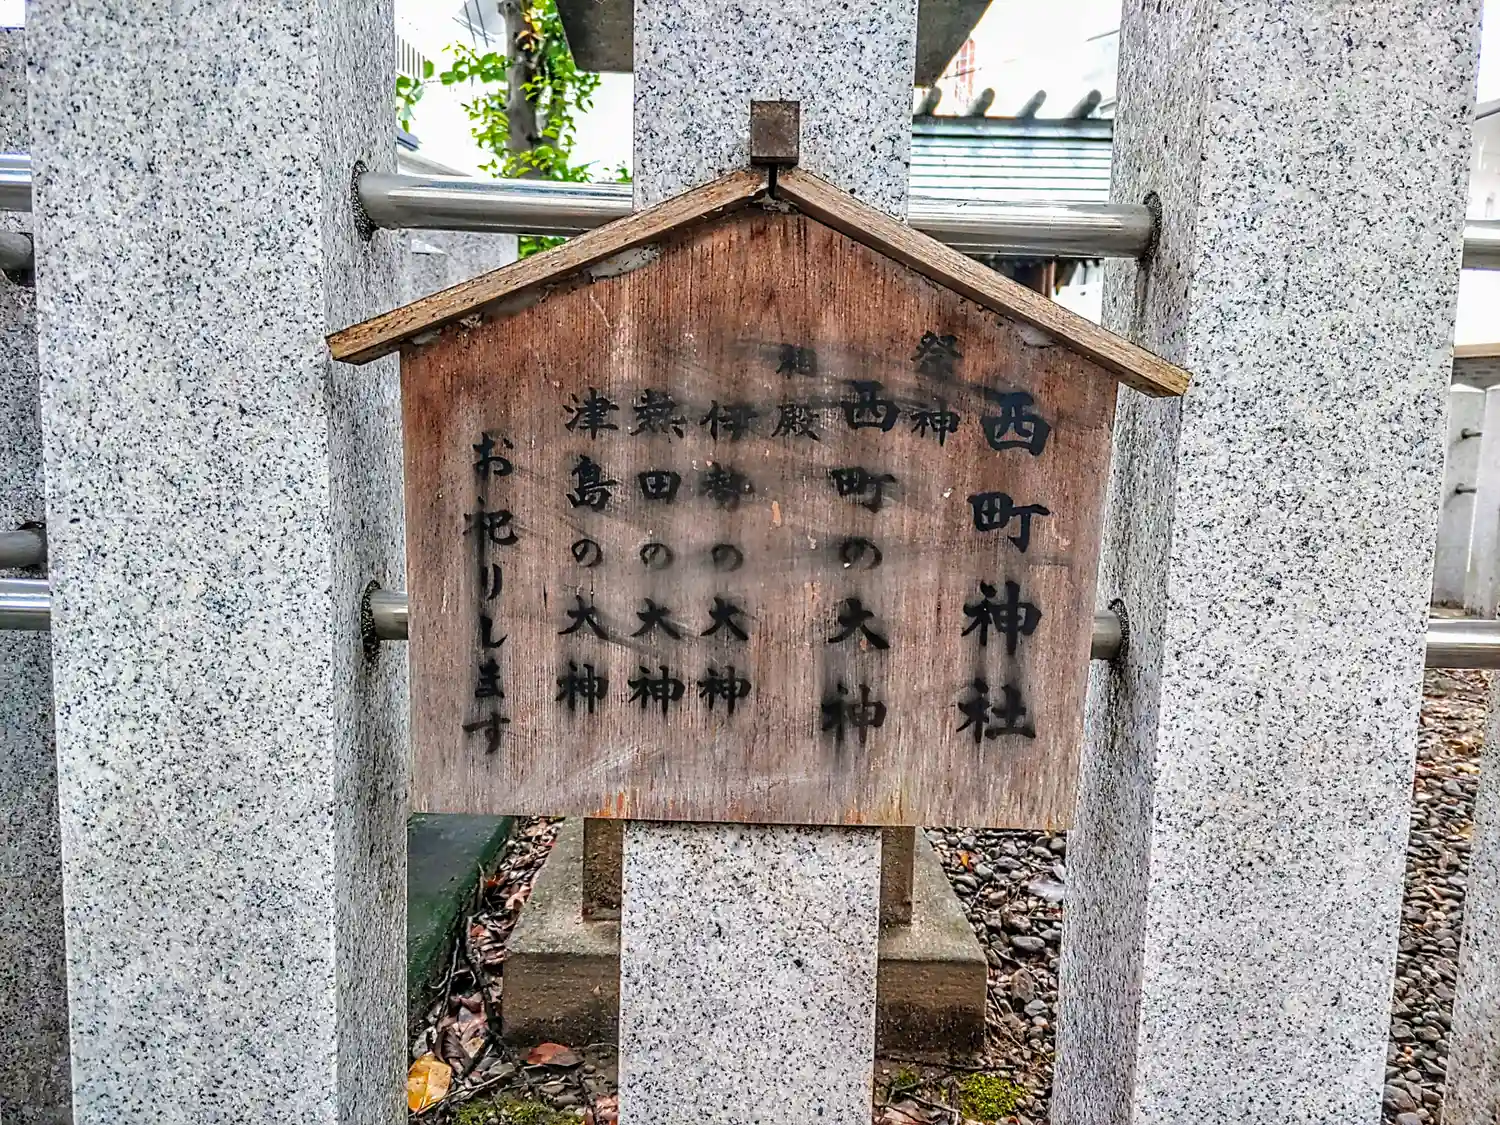 西町神社
祭神
西町の大神
相殿
伊勢の大神
熱田の大神
津島の大神
お祀りします